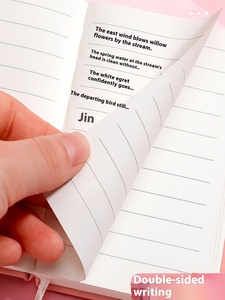 The east wind blows willow
flowers by the stream.
The spring water at the stream's
head is clean without...
The white egret
confidently goes...
The departing bird still...
Jin
Double-sided
writing